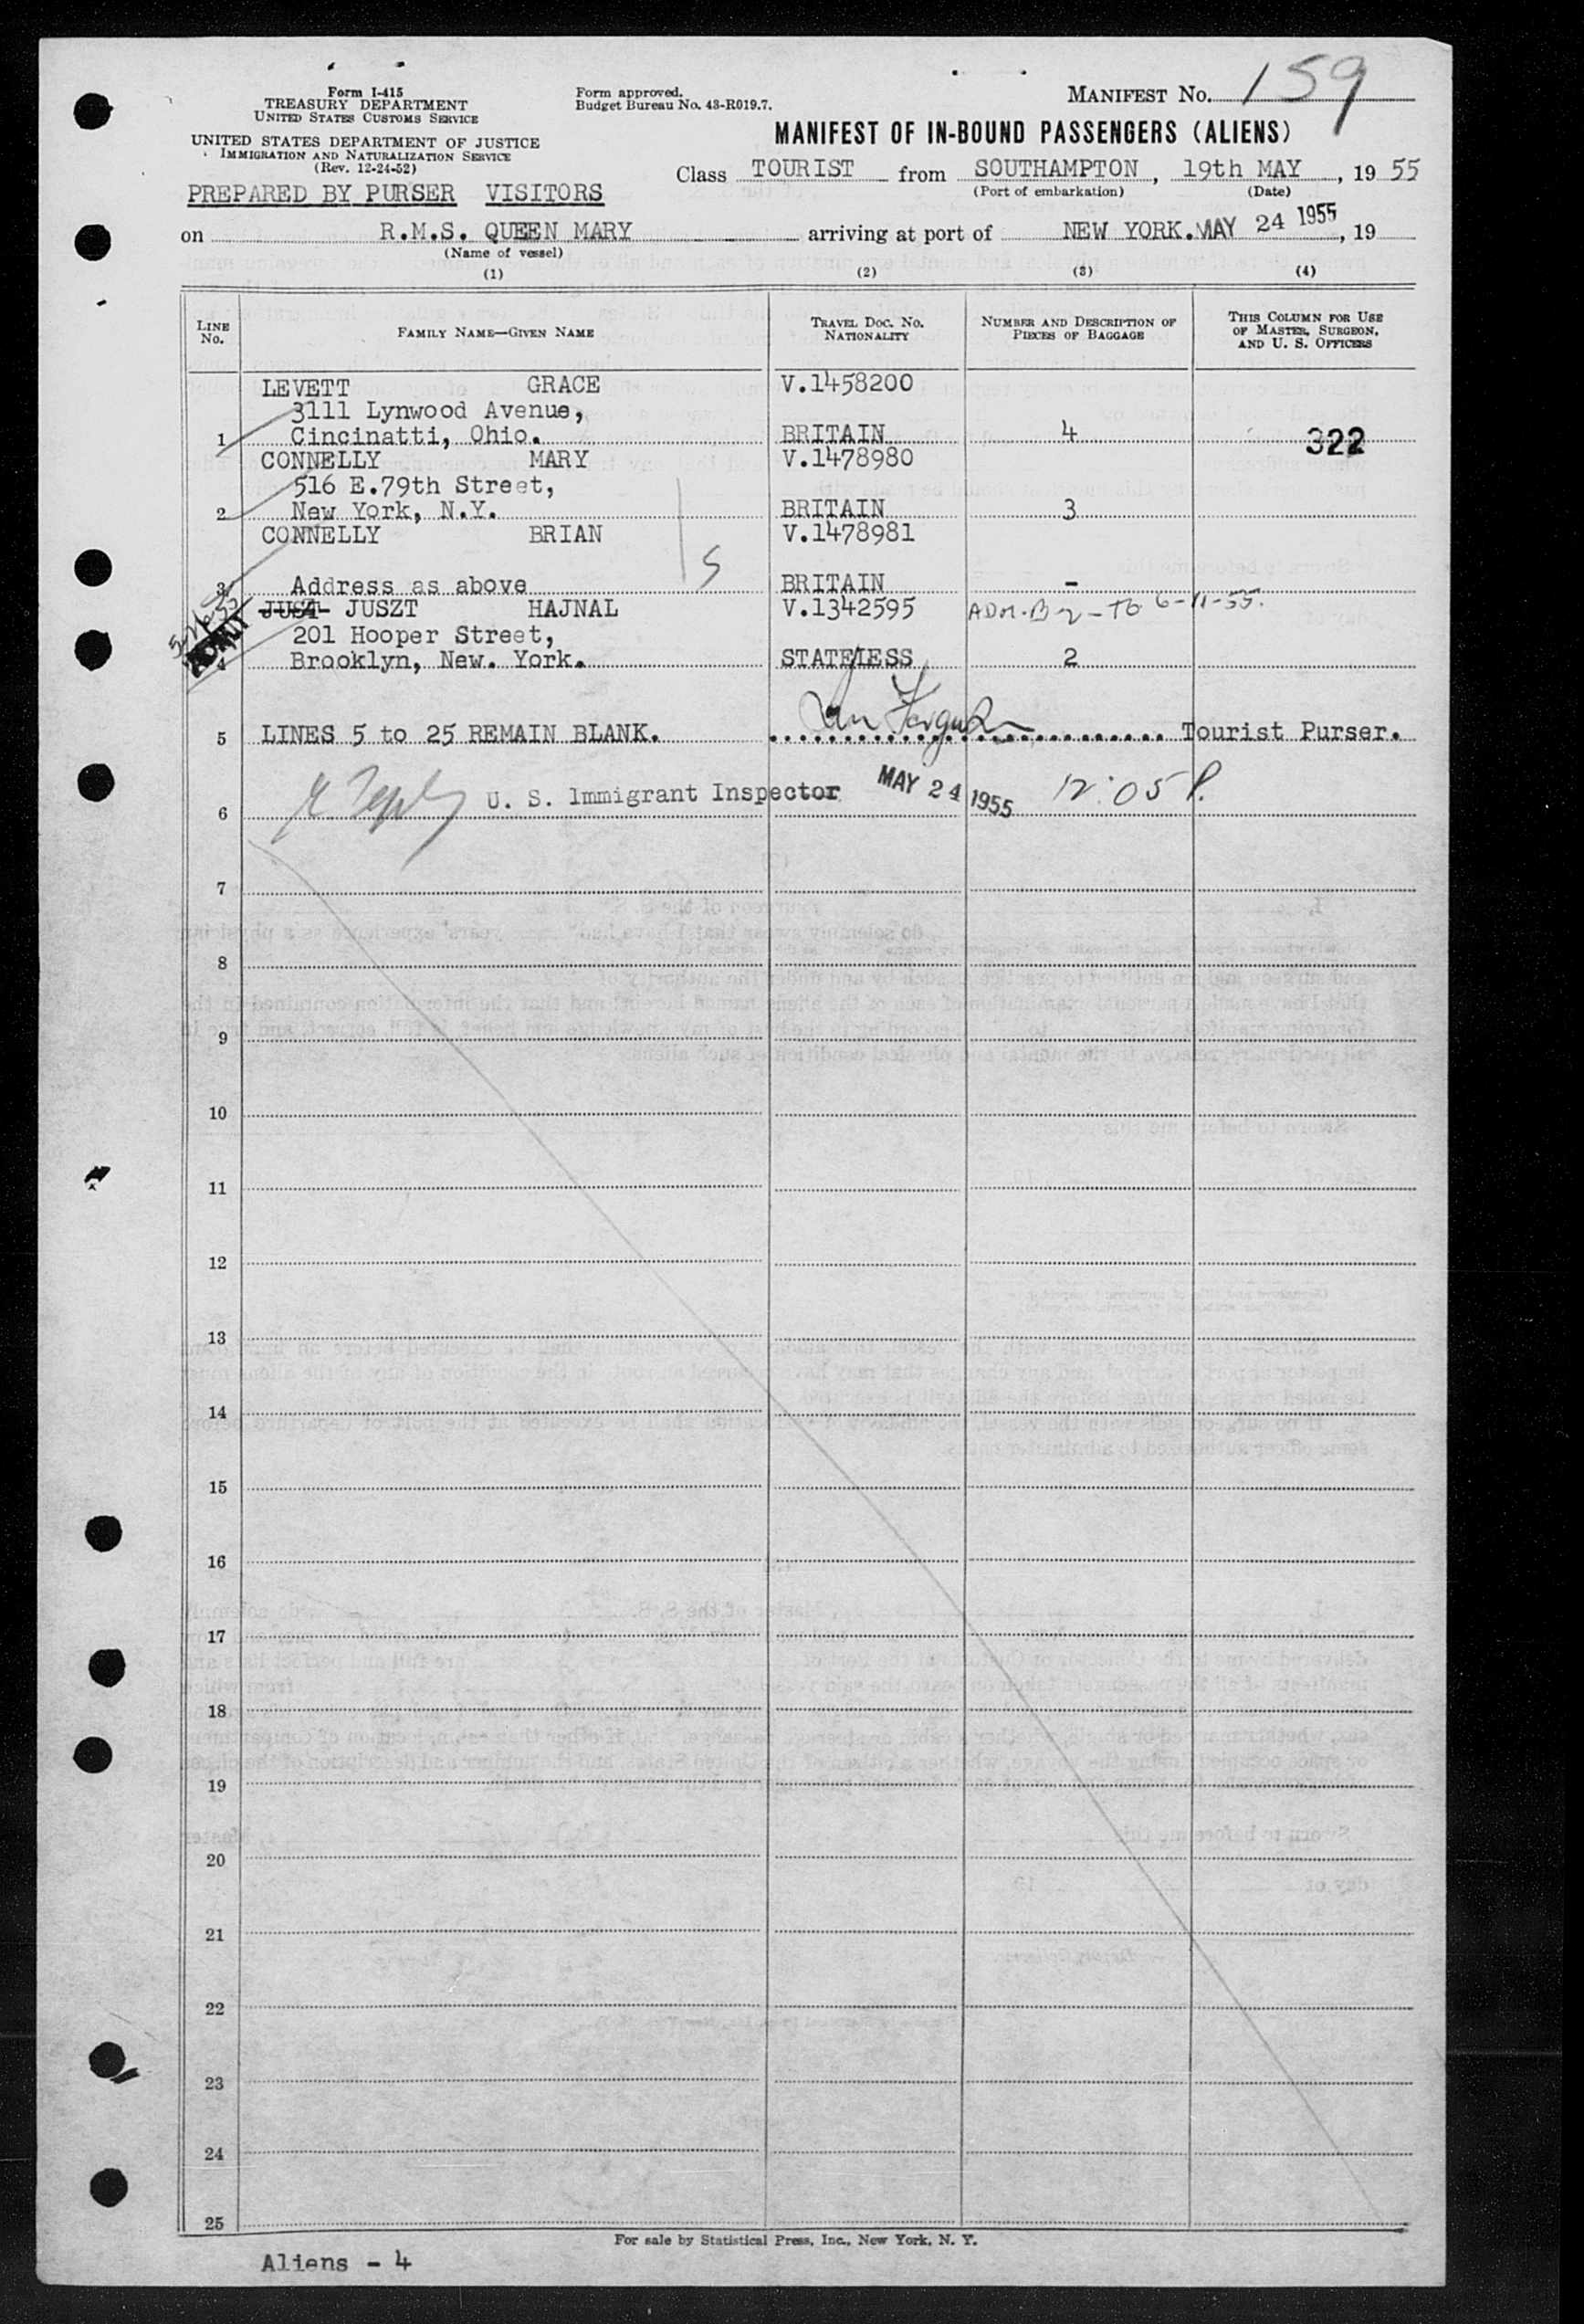 Form I-415
TREASURY DEPARTMENT
UNITED STATES CUSTOMS SERVICE
UNITED STATES DEPARTMENT OF JUSTICE
IMMIGRATION AND NATURALIZATION SERVICE
(Rev. 12-24-52)
Form approved.
Budget Bureau No. 43-R019.7.
MANIFEST No. 159
MANIFEST OF IN-BOUND PASSENGERS (ALIENS)
Class TOURIST from SOUTHAMPTON, 19th MAY, 19 55
(Port of embarkation) (Date)
PREPARED BY PURSER VISITORS
on R.M.S. QUEEN MARY arriving at port of NEW YORK. MAY 24 1955, 19
(Name of vessel)
(1) (2) (3) (4)
LINE No. FAMILY NAME—GIVEN NAME TRAVEL DOC. NO. NATIONALITY NUMBER AND DESCRIPTION OF PIECES OF BAGGAGE THIS COLUMN FOR USE OF MASTER, SURGEON, AND U. S. OFFICERS
LEVETT GRACE V.1458200
3111 Lynwood Avenue,
1 Cincinatti, Ohio. BRITAIN 4 322
CONNELLY MARY V.1478980
516 E.79th Street,
2 New York, N.Y. BRITAIN 3
CONNELLY BRIAN V.1478981
S
3 Address as above BRITAIN -
JUST JUSZT HAJNAL V.1342595 ADM. B-2 - TO 6-11-55.
201 Hooper Street,
ADMIT
4 Brooklyn, New. York. STATELESS 2
5 LINES 5 to 25 REMAIN BLANK. Tourist Purser.
6 U. S. Immigrant Inspector MAY 24 1955 12:05 P.
7
8
9
10
11
12
13
14
15
16
17
18
19
20
21
22
23
24
25
For sale by Statistical Press, Inc., New York, N. Y.
Aliens - 4